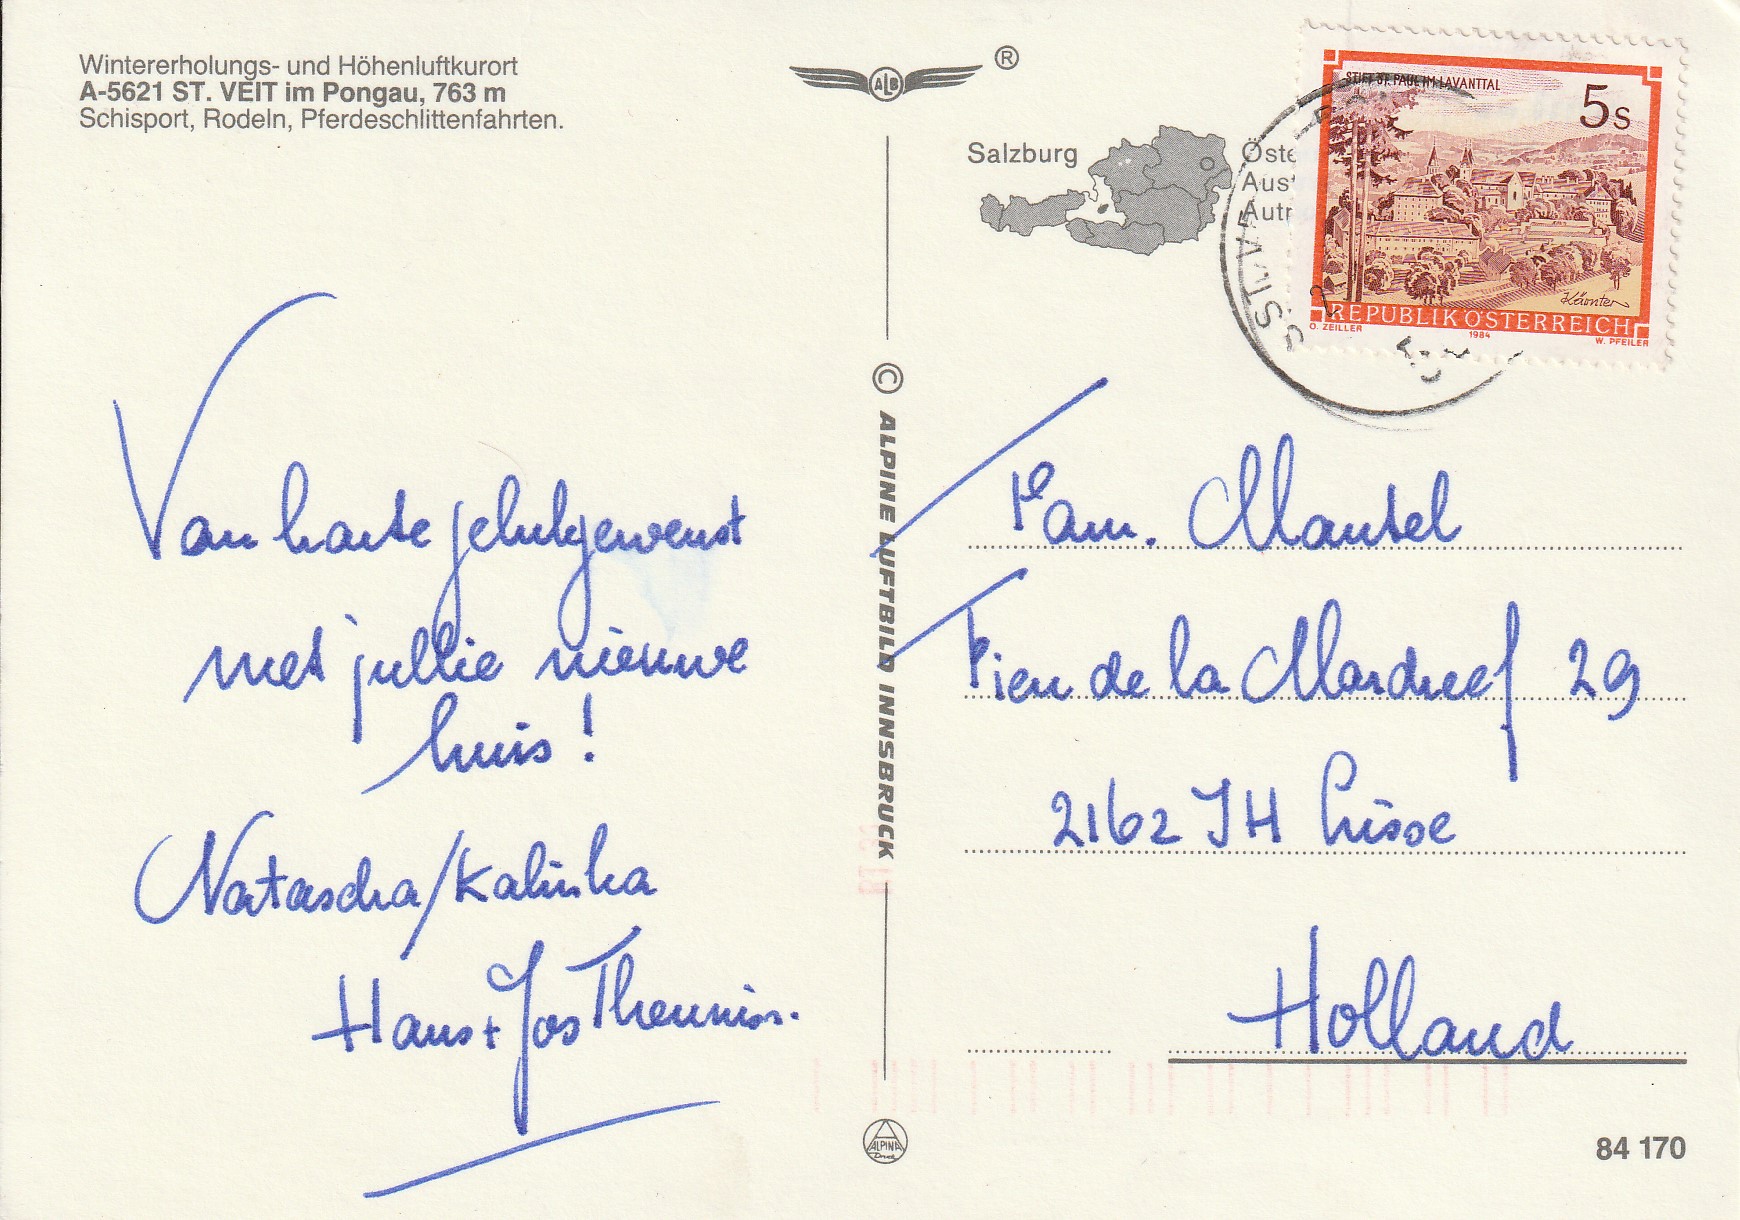 Wintererholungs- und Höhenluftkurort
A-5621 ST. VEIT im Pongau, 763 m
Schisport, Rodeln, Pferdeschlittenfahrten.
Van harte gelukgewenst
met jullie nieuwe
huis!
Natascha/Kalinka
Hans + Jos Theuniss.
ALB
®
Salzburg
Öste
Aust
Autr
STIFT ST. PAUL IM LAVANTTAL
5s
Kärnten
REPUBLIK ÖSTERREICH
O. ZEILLER
1984
W. PFEILER
ST. VE
© ALPINE LUFTBILD INNSBRUCK
Fam. Mantel
Pieu de la Mardreef 29
2162 JH Lisse
Holland
ALPINA
Druck
84 170